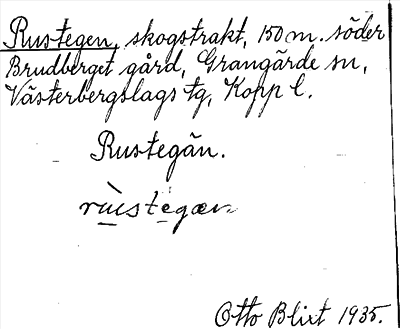 Rustegen, skogstrakt, 150 m. söder
Brudberget gård, Grangärde sn,
Västerbergslags tg, Kopp l.
Rustegän.
rùstegæn
Otto Blixt 1935.